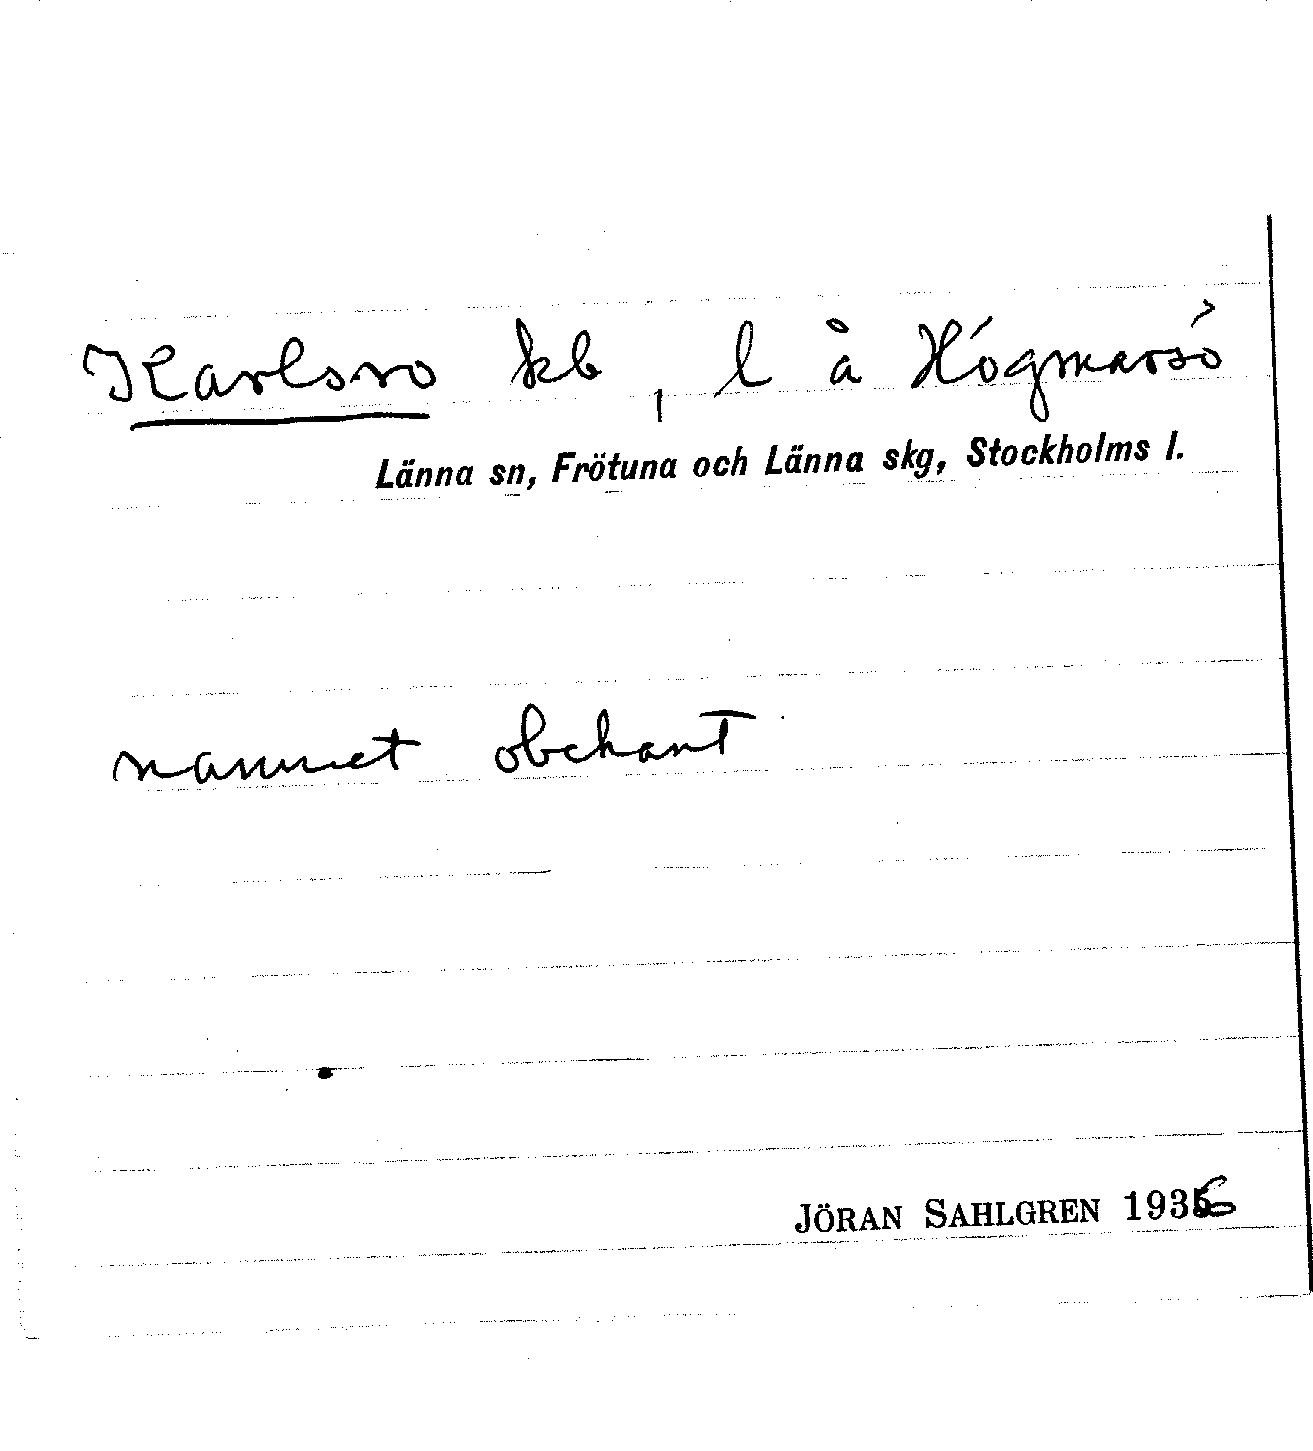 Karlsro kb, l å Högmarsö
Länna sn, Frötuna och Länna skg, Stockholms l.
namnet obekant
JÖRAN SAHLGREN 1936